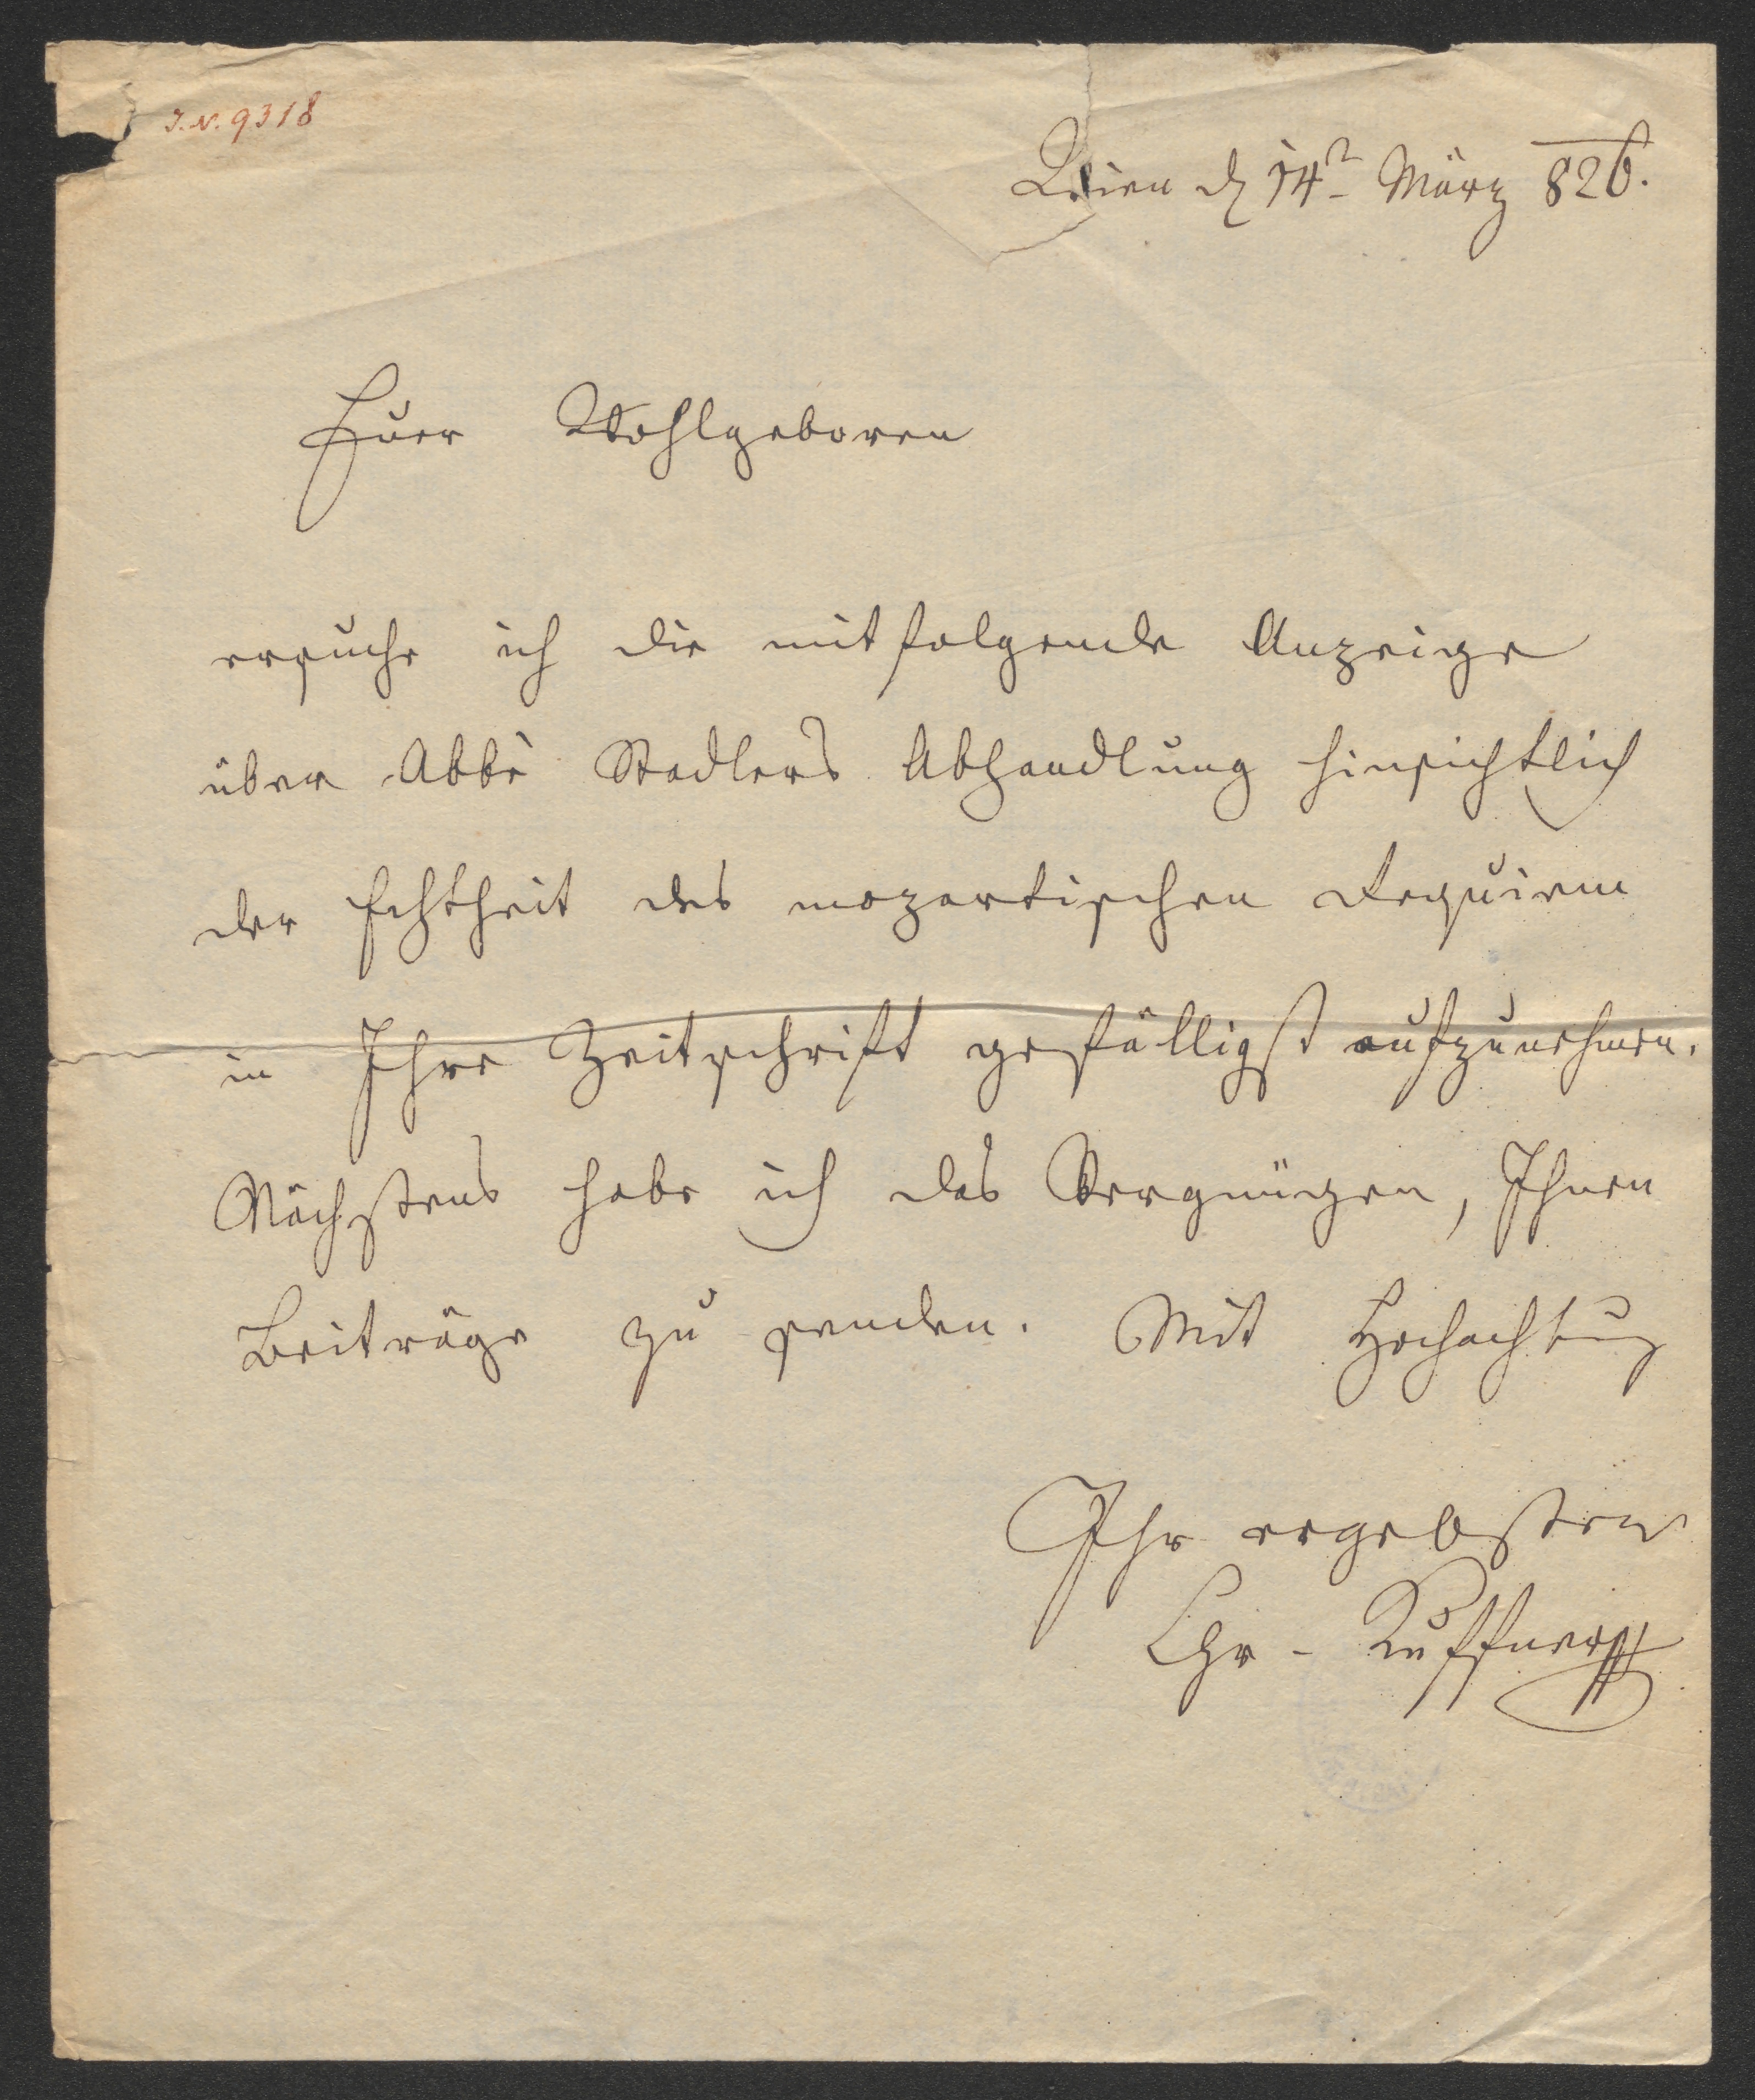 I.N. 9318
Wien d 14t März 826.
Euer Wohlgeboren
ersuche ich die mitfolgende Anzeige
über Abbè Stadlers Abhandlung hinsichtlich
der Echtheit des mozartischen Requiem
in Ihre Zeitschrift gefälligst aufzunehmen.
Nächstens habe ich das Vergnügen, Ihnen
Beiträge zu senden. Mit Hochachtung
Ihr ergebster
Chr. Kuffner